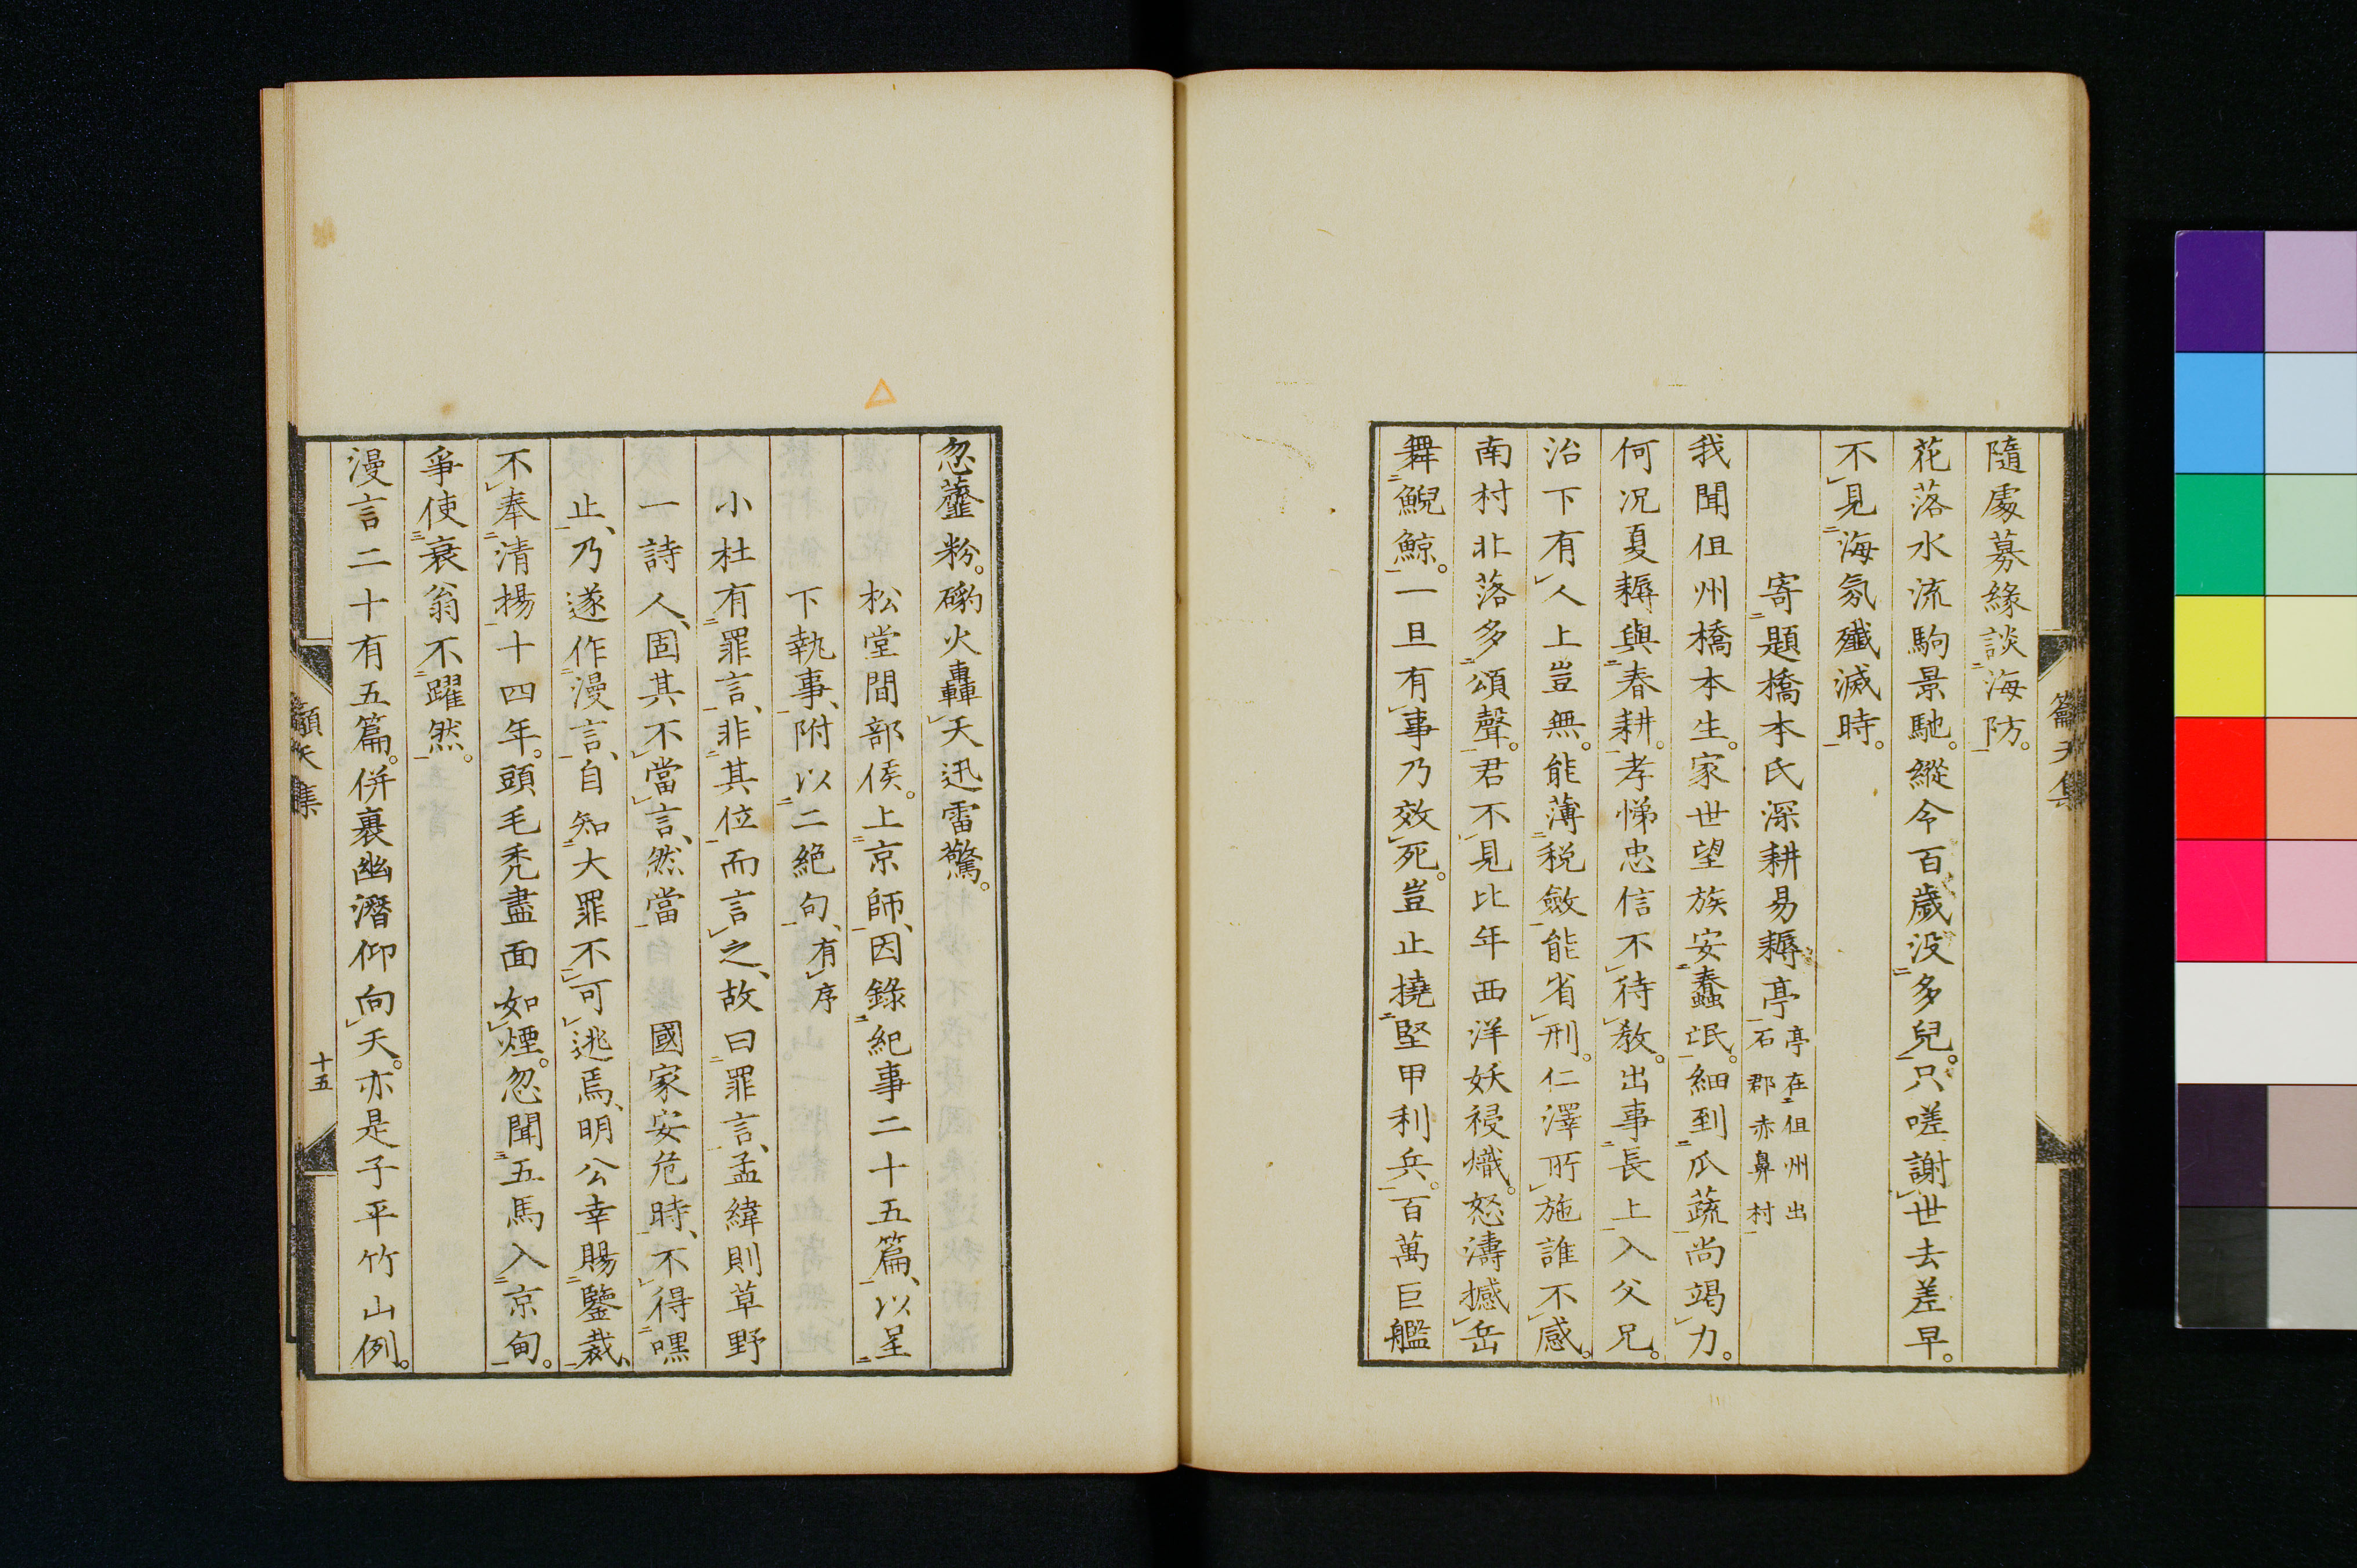 隨處募緣談海防。
花落水流駒景馳。縱令百歲沒多兒。只嗟謝世去差早。
不見海氛殲滅時。
寄題橋本氏深耕易耨亭亭在伹州出
石郡赤鼻村
我聞伹州橋本生。家世望族安蠢氓。細到瓜蔬尚竭力。
何況夏耨與春耕。孝悌忠信不待教。出事長上入父兄。
治下有人上豈無。能薄税斂能省刑。仁澤所施誰不感。
南村北落多頌聲。君不見比年西洋妖祲熾。怒濤撼岳
舞鯢鯨。一旦有事乃效死。豈止撓堅甲利兵。百萬巨艦
忽虀粉。礮火轟天迅雷驚。
松堂間部侯。上京師、因錄紀事二十五篇、以呈
下執事、附以二絕句、有序
小杜有罪言、非其位而言之、故曰罪言、孟緯則草野
一詩人、固其不當言、然當國家安危時、不得嘿
止、乃遂作漫言、自知大罪不可逃焉、明公幸賜鑒裁、
不奉清揚十四年。頭毛禿盡面如煙。忽聞五馬入京甸。
爭使衰翁不躍然。
漫言二十有五篇。併裹幽潛仰向天。亦是子平竹山例。
籲天集
十五